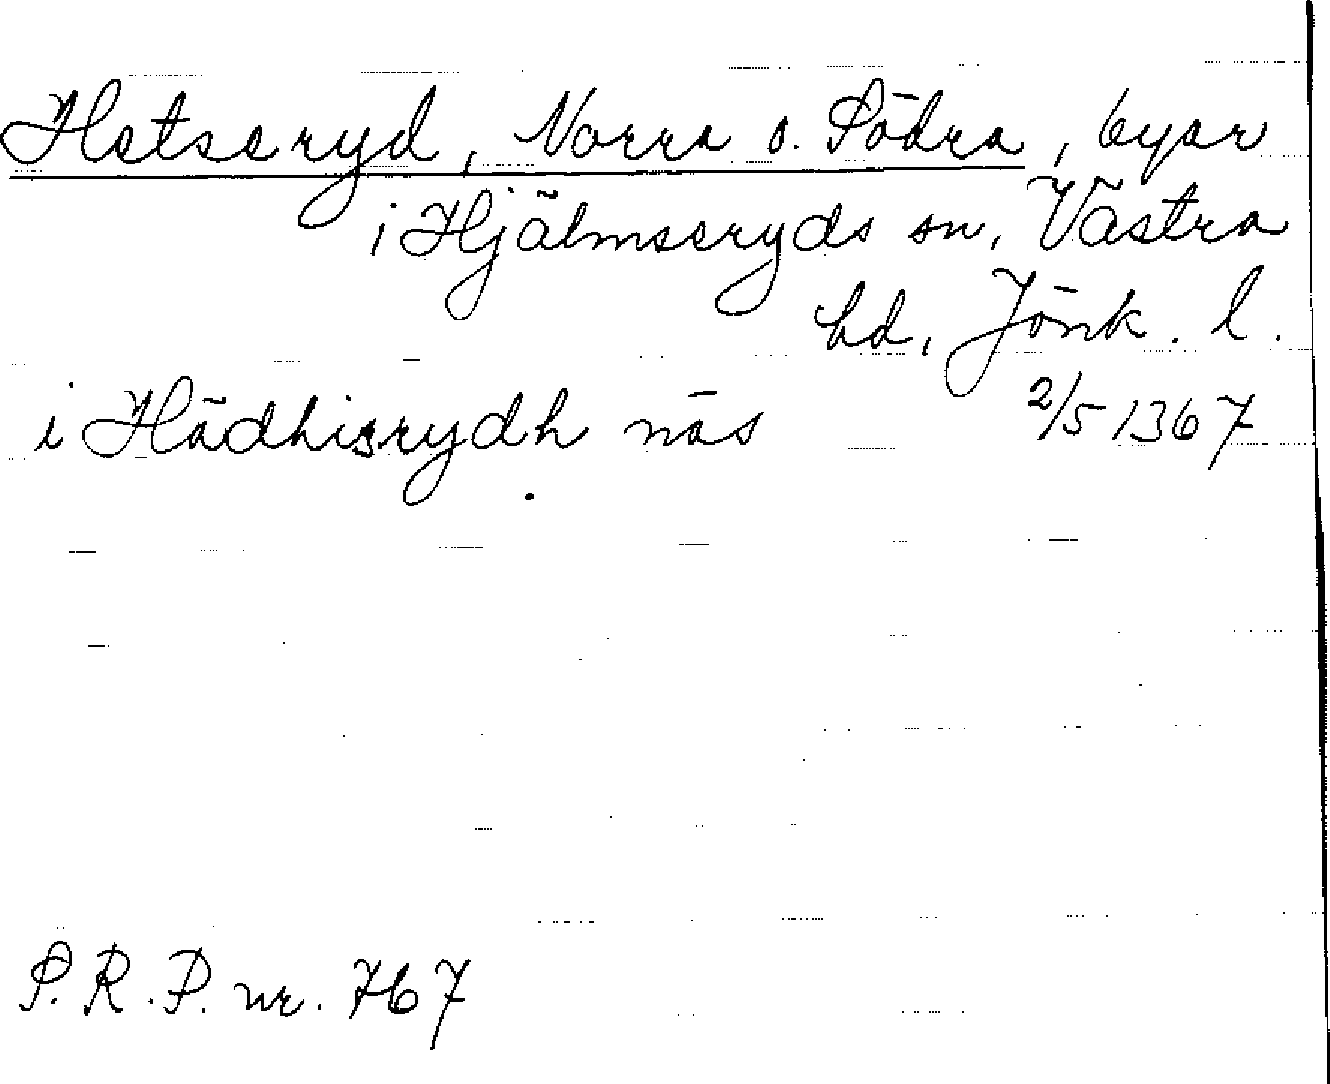 Hetseryd, Norra o. Södra, byar
i Hjälmseryds sn, Västra
hd, Jönk. l.
i Hädhisrydh näs 2/5 1367
S.R.P. nr. 767